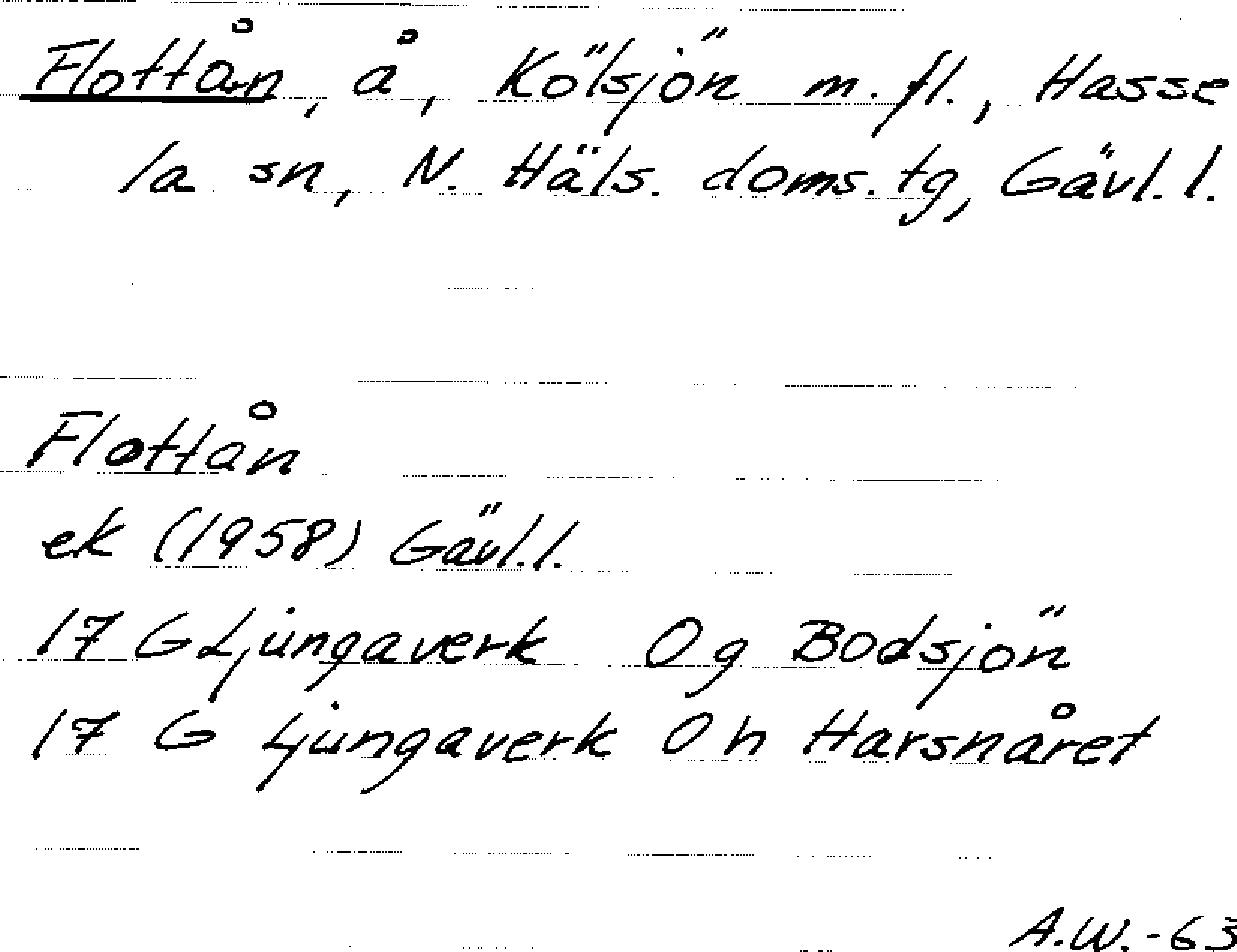 Flottån, å, Kölsjön m.fl., Hasse
la sn, N. Häls. doms.tg, Gävl.l.
Flottån
ek (1958) Gävl.l.
17 G Ljungaverk Og Bodsjön
17 G Ljungaverk Oh Harsnåret
A.W.-63